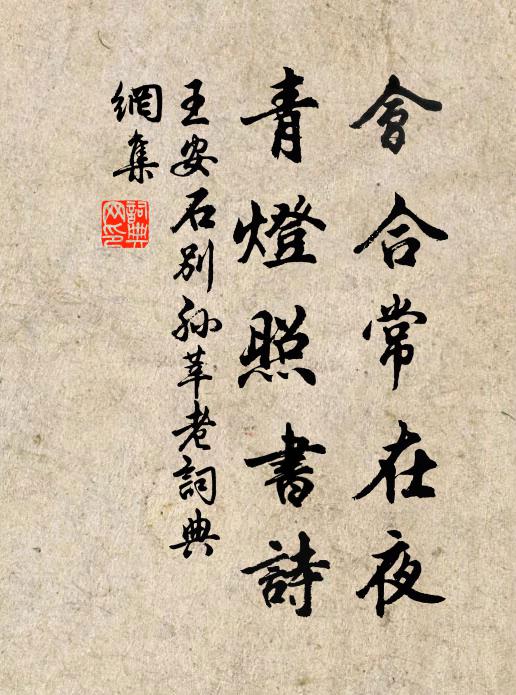 會合常在夜
青燈照書詩
王安石別孫莘老詞典
網集
詞典
网印